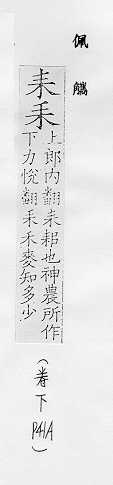 佩觿
耒
上郎内翻耒耜也神農所作
下力悅翻禾麥知多少
(卷下 P41A)